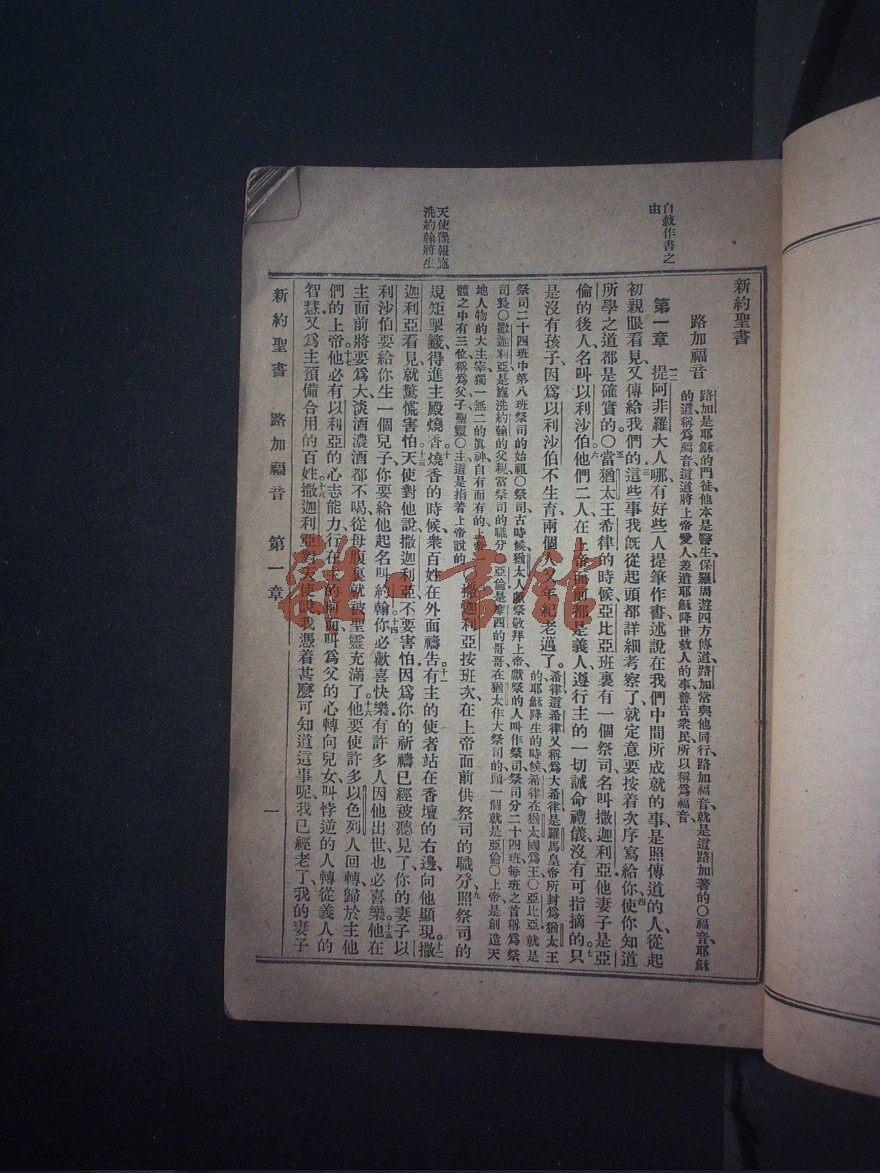 自敘作書之
由
天使豫報施
洗約翰將生
新約聖書
路加福音
路加是耶穌的門徒他本是醫生、保羅周遊四方傳道、路加常與他同行、路加福音、就是這路加著的〇福音、耶穌
的道、稱爲福音、這道將上帝愛人、差遣耶穌降世救人的事、普告衆民、所以稱爲福音、
第一章 一提阿非羅大人哪、有好些人提筆作書、述說在我們中間所成就的事、二是照傳道的人、從起
初親眼看見、又傳給我們的、三這些事我旣從起頭都詳細考察了、就定意要按着次序寫給你、四使你知道
所學之道都是確實的、〇五當猶太王希律的時候、亞比亞班裏有一個祭司、名叫撒迦利亞、他妻子是亞
倫的後人、名叫以利沙伯、六他們二人、在上帝面前都是義人、遵行主的一切誡命禮儀、沒有可指摘的、七只
是沒有孩子、因爲以利沙伯不生育、兩個人又年紀老邁了。
希律這希律又稱爲大希律、是羅馬皇帝所封爲猶太王
的、耶穌降生的時候、希律在猶太國爲王〇亞比亞、就是
祭司二十四班中第八班祭司的始祖〇祭司古時候、猶太人獻祭敬拜上帝、獻祭的人叫作祭司、祭司分二十四班、每班之首、稱爲祭
司長〇撒迦利亞是施洗約翰的父親、當祭司的職分〇亞倫是摩西的哥哥、在猶太作大祭司的、頭一個就是亞倫〇上帝是創造天
地人物的大主宰、獨一無二的眞神、自有而有的上帝
體之中有三位、稱爲父子聖靈〇主這是指着上帝說的
撒迦利亞按班次在上帝面前供祭司的職分、九照祭司的
規矩掣籤、得進主殿燒香、十燒香的時候、衆百姓在外面禱吿、十一有主的使者站在香壇的右邊、向他顯現、十二撒
迦利亞看見、就驚慌害怕、十三天使對他說、撒迦利亞、不要害怕、因爲你的祈禱已經被聽見了、你的妻子以
利沙伯要給你生一個兒子、你要給他起名叫約翰、十四你必歡喜快樂、有許多人因他出世、也必喜樂、十五他在
主面前將要爲大、淡酒濃酒都不喝、從母腹裏就被聖靈充滿了、十六他要使許多以色列人回轉、歸於主他
們的上帝、十七他必有以利亞的心志能力、行在主的前面、叫爲父的心轉向兒女、叫悖逆的人轉從義人的
智慧、又爲主預備合用的百姓、十八撒迦利亞對天使說、我憑着甚麽可知道這事呢、我已經老了、我的妻子
新約聖書 路加福音 第一章 一